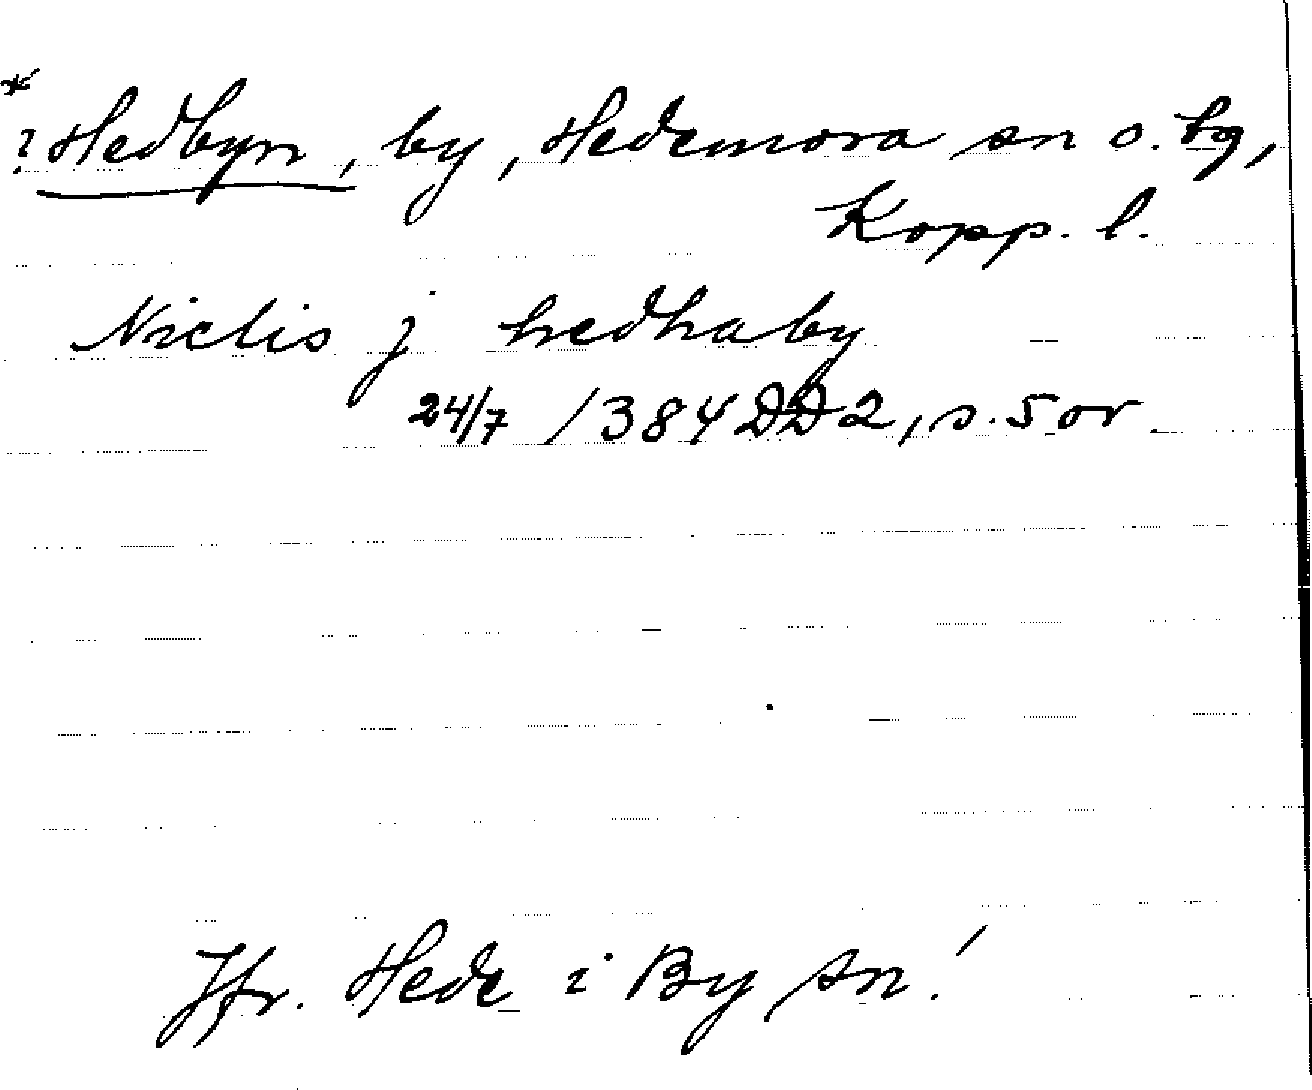 *
? Hedbyn, by, Hedemora sn o. tg,
Kopp. l.
Niclis j hedhaby
24/7 1384 DD2, s. 5 or
Jfr. Hede i By sn!